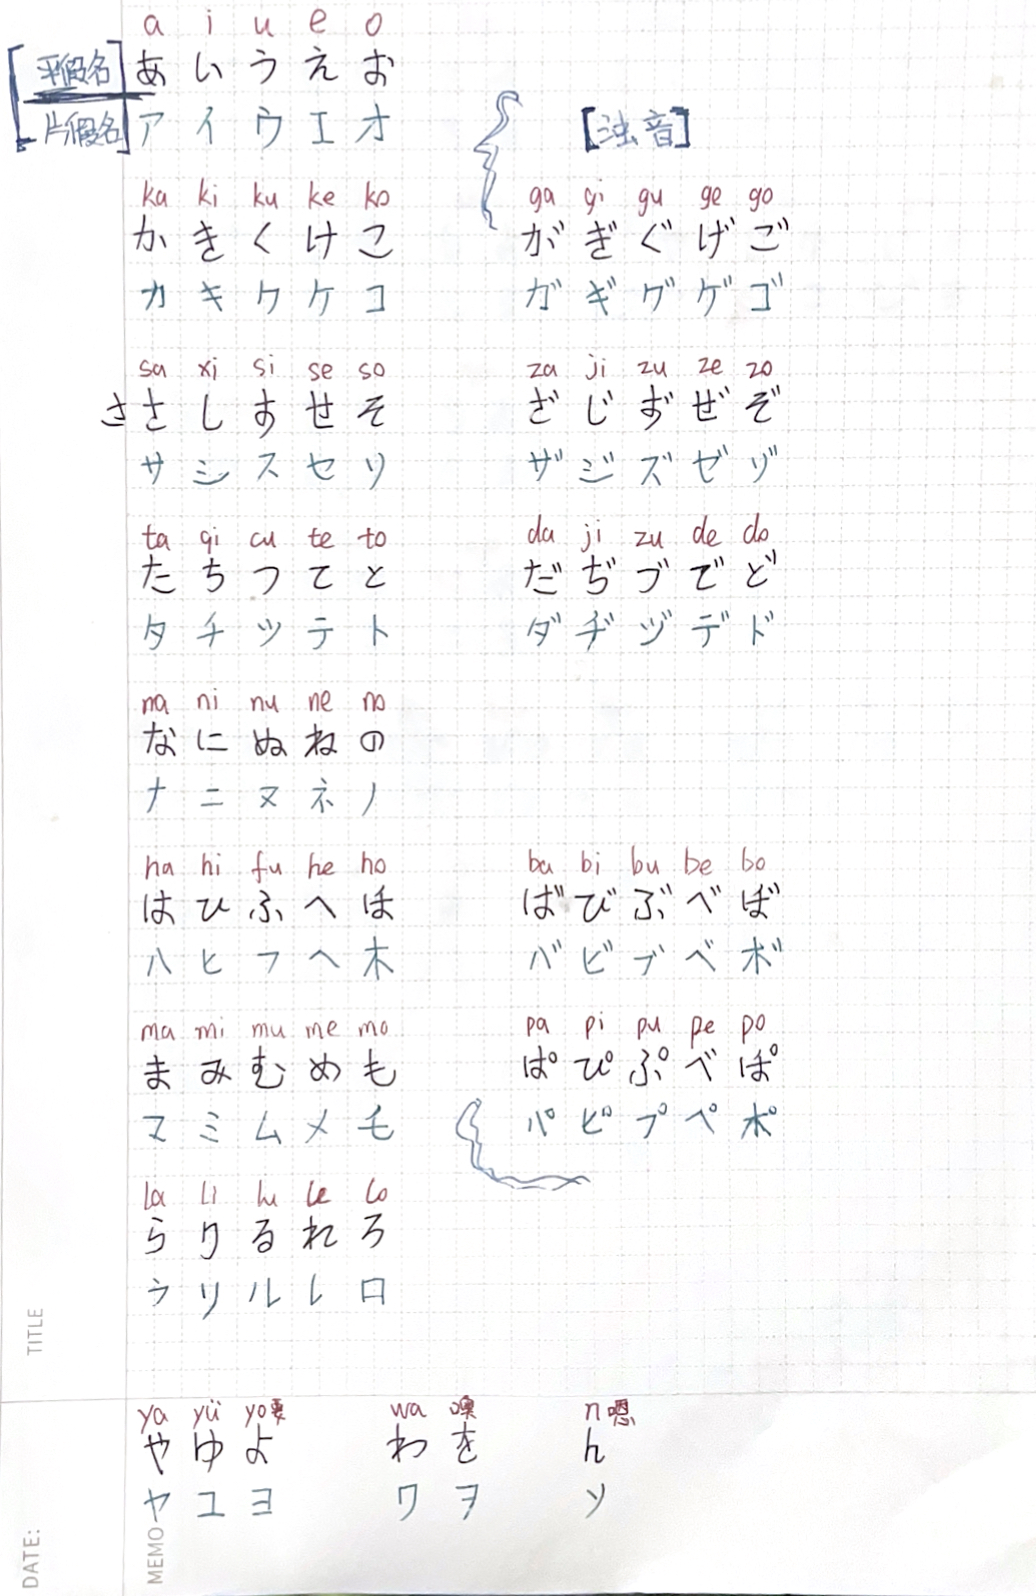 a i u e o
[平假名] あ い う え お
[片假名] ア イ ウ エ オ
[浊音]
ka ki ku ke ko ga gi gu ge go
か き く け こ が ぎ ぐ げ ご
カ キ ク ケ コ ガ ギ グ ゲ ゴ
sa xi si se so za ji zu ze zo
さ さ し す せ そ ざ じ ず ぜ ぞ
サ シ ス セ ソ ザ ジ ズ ゼ ゾ
ta qi cu te to da ji zu de do
た ち つ て と だ ぢ づ で ど
タ チ ツ テ ト ダ ヂ ヅ デ ド
na ni nu ne no
な に ぬ ね の
ナ ニ ヌ ネ ノ
ha hi fu he ho ba bi bu be bo
は ひ ふ へ ほ ば び ぶ べ ぼ
ハ ヒ フ ヘ ホ バ ビ ブ ベ ボ
ma mi mu me mo pa pi pu pe po
ま み む め も ぱ ぴ ぷ べ ぽ
マ ミ ム メ モ パ ピ プ ペ ポ
la li lu le lo
ら り る れ ろ
ラ リ ル レ ロ
ya yü yo要 wa 噢 n嗯
や ゆ よ わ を ん
ヤ ユ ヨ ワ ヲ ソ
TITLE
DATE:
MEMO